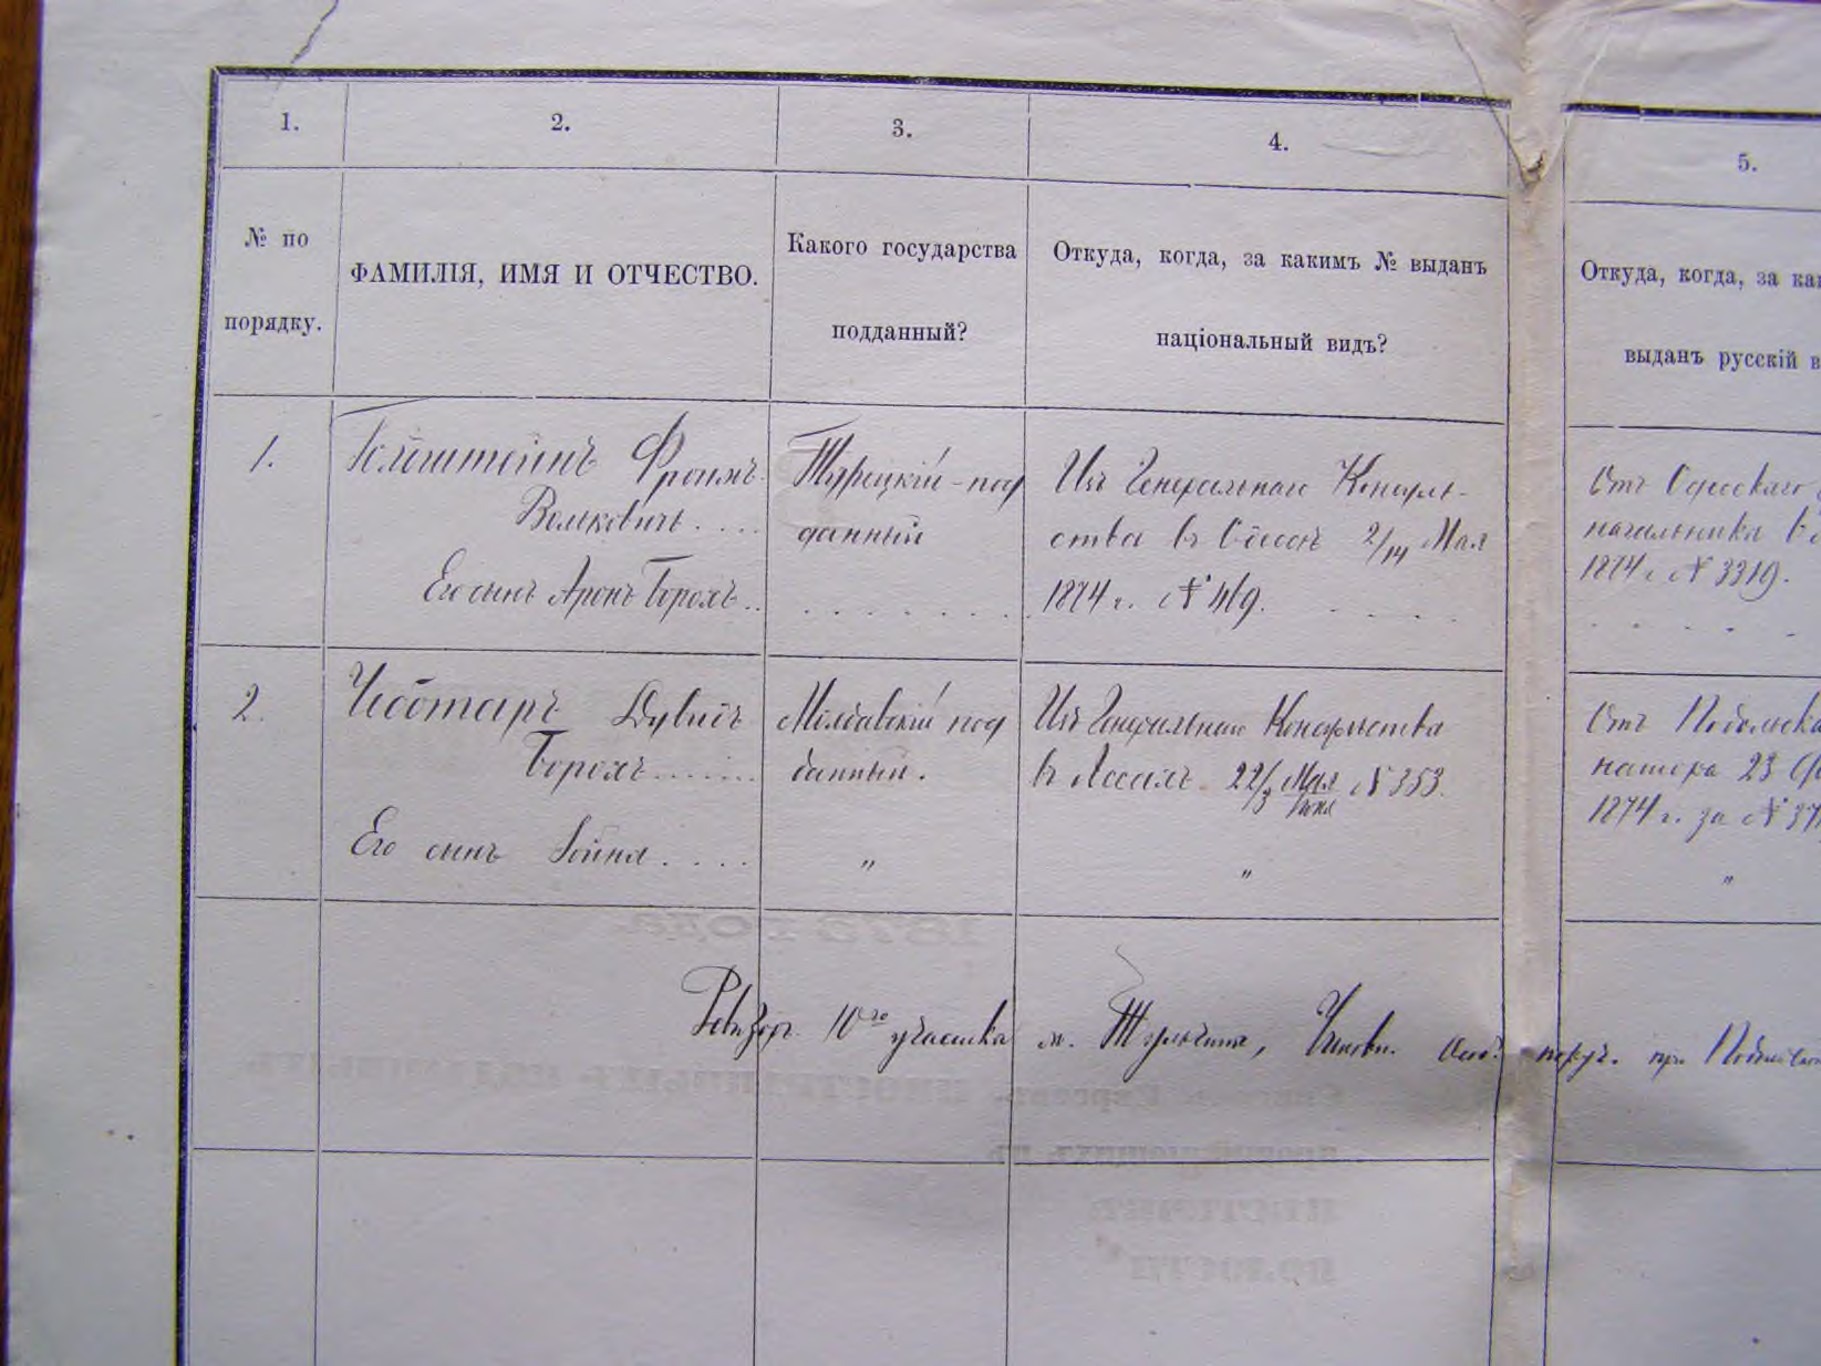 1. 2. 3. 4. 5.
№ по порядку.
ФАМИЛІЯ, ИМЯ И ОТЧЕСТВО.
Какого государства
подданный?
Откуда, когда, за какимъ № выданъ
національный видъ?
Откуда, когда, за ка
выданъ русскій в
1.
Фроимъ
Волковичъ . . . .
Его сынъ Аронъ Борохъ . .
Турецкій под
данный
Изъ Генеральнаго Консуль-
ства въ Одессѣ 2/14 Мая
1874 г. № 419.
Отъ Одесскаго
начальника
1874 г. № 3319.
2.
Чеботаръ Дувидъ
Борохъ . . . . . .
Его сынъ Зойна . . . .
Молдавскій под
данный.
"
Изъ Генеральнаго Консульства
въ Яссахъ 22/3 Мая/Іюня № 353.
"
Отъ Подольска
23
1874 г. за № 37
"
Ревизоръ 10го участка м. Тульчина, Чиновн. Особ. поруч. при